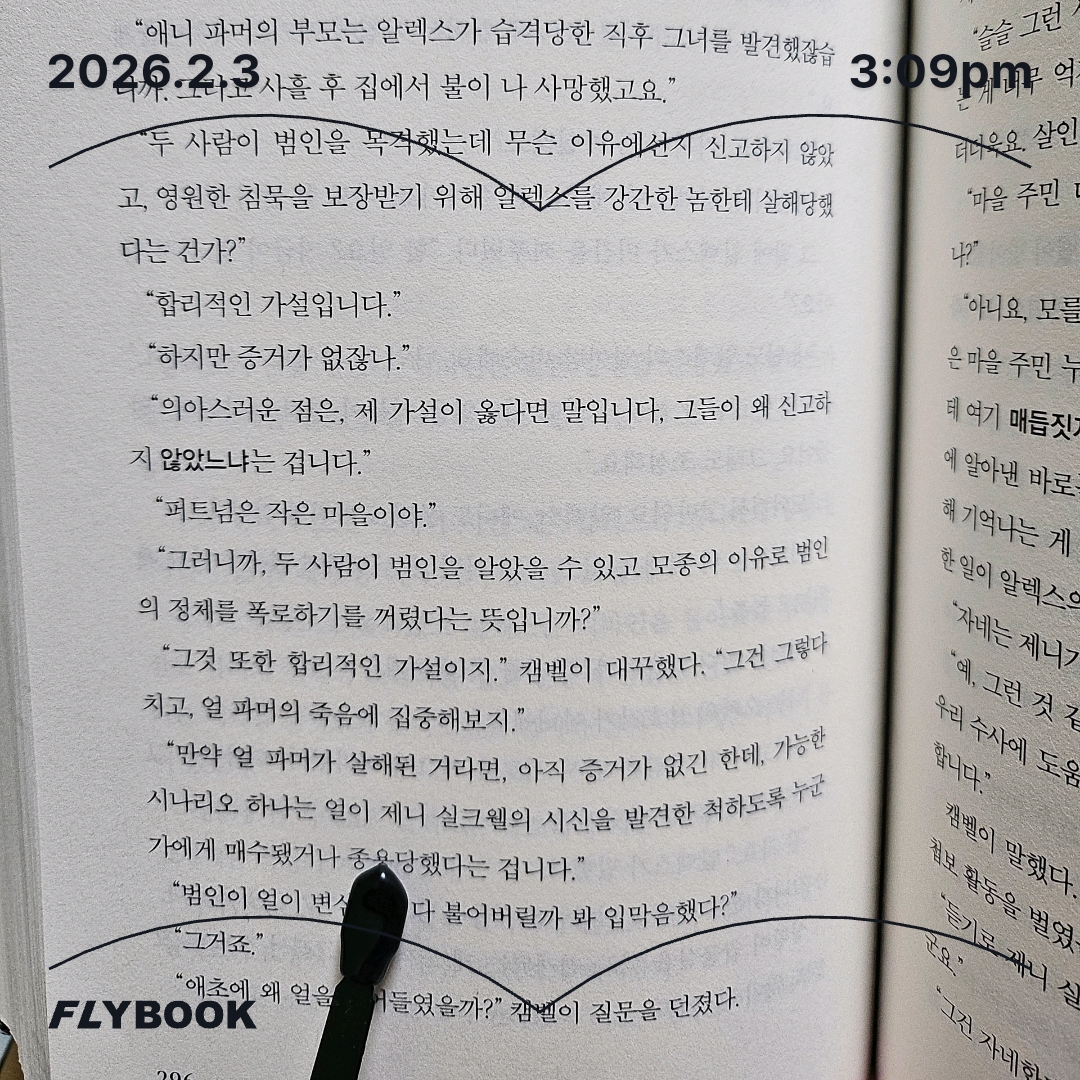 2026.2.3
3:09pm
“애니 파머의 부모는 알렉스가 습격당한 직후 그녀를 발견했잖습
니까. 그리고 사흘 후 집에서 불이 나 사망했고요.”
“두 사람이 범인을 목격했는데 무슨 이유에선지 신고하지 않았
고, 영원한 침묵을 보장받기 위해 알렉스를 강간한 놈한테 살해당했
다는 건가?”
“합리적인 가설입니다.”
“하지만 증거가 없잖나.”
“의아스러운 점은, 제 가설이 옳다면 말입니다, 그들이 왜 신고하
지 않았느냐는 겁니다.”
“퍼트넘은 작은 마을이야.”
“그러니까, 두 사람이 범인을 알았을 수 있고 모종의 이유로 범인
의 정체를 폭로하기를 꺼렸다는 뜻입니까?”
“그것 또한 합리적인 가설이지.” 캠벨이 대꾸했다. “그건 그렇다
치고, 얼 파머의 죽음에 집중해보지.”
“만약 얼 파머가 살해된 거라면, 아직 증거가 없긴 한데, 가능한
시나리오 하나는 얼이 제니 실크웰의 시신을 발견한 척하도록 누군
가에게 매수됐거나 종용당했다는 겁니다.”
“범인이 얼이 다 불어버릴까 봐 입막음했다?”
“그거죠.”
“애초에 왜 얼을 캠벨이 질문을 던졌다.
296
“슬슬 그런
는 게 너무 억
더더욱요. 살인
“마을 주민
나?”
“아니요, 모를
은 마을 주민 누
테 여기 매듭짓지
에 알아낸 바로
해 기억나는 게
한 일이 알렉스의
“자네는 제니가
“예, 그런 것 같
우리 수사에 도움
합니다.”
캠벨이 말했다.
첩보 활동을 벌였
“듣기로 제니 실
군요.”
“그건 자네한
FLYBOOK